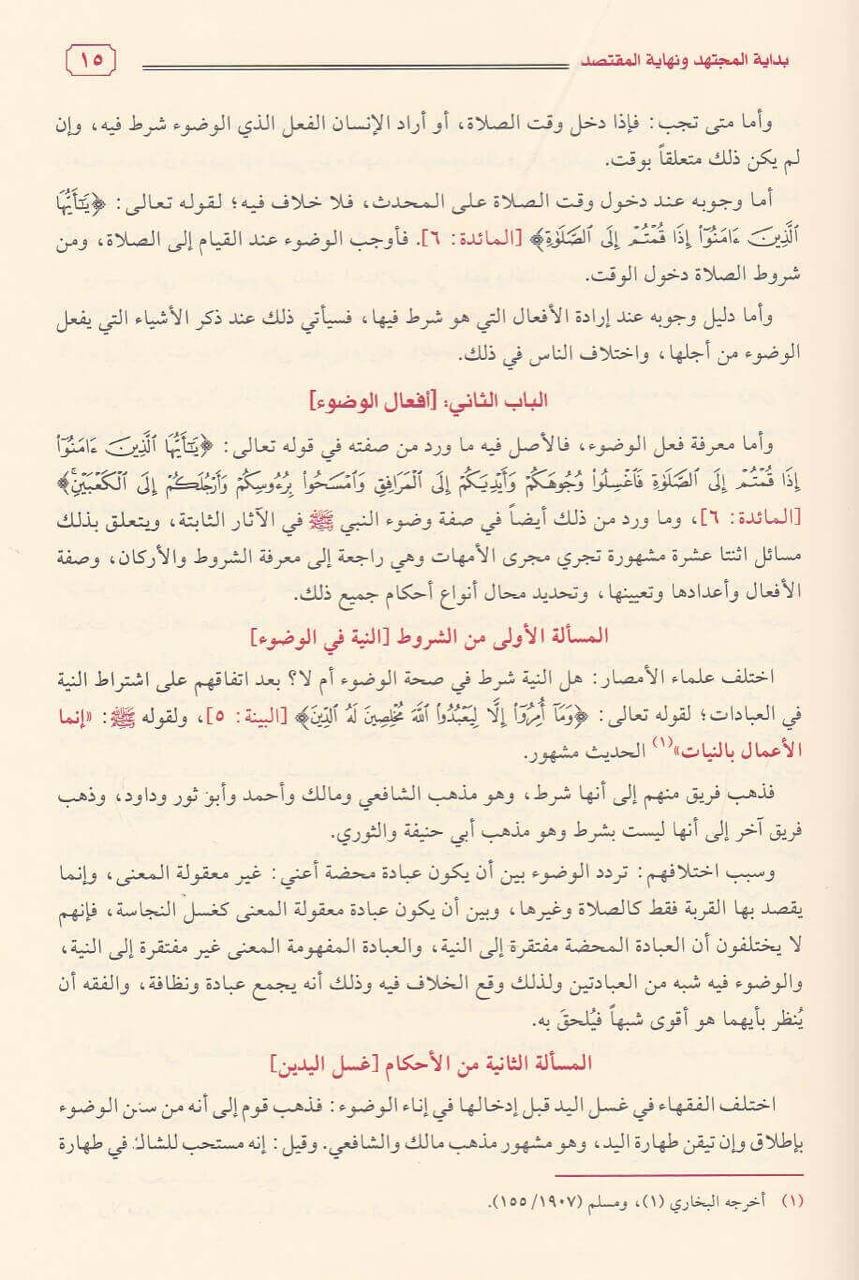 بداية المجتهد ونهاية المقتصد
١٥
وأما متى تجب: فإذا دخل وقت الصلاة، أو أراد الإنسان الفعل الذي الوضوء شرط فيه، وإن
لم يكن ذلك متعلقاً بوقت.
أما وجوبه عند دخول وقت الصلاة على المحدث، فلا خلاف فيه؛ لقوله تعالى: ﴿يَٰٓأَيُّهَا
ٱلَّذِينَ ءَامَنُوٓاْ إِذَا قُمۡتُمۡ إِلَى ٱلصَّلَوٰةِ﴾ [المائدة: ٦]. فأوجب الوضوء عند القيام إلى الصلاة، ومن
شروط الصلاة دخول الوقت.
وأما دليل وجوبه عند إرادة الأفعال التي هو شرط فيها، فسيأتي ذلك عند ذكر الأشياء التي يفعل
الوضوء من أجلها، واختلاف الناس في ذلك.
الباب الثاني: [أفعال الوضوء]
وأما معرفة فعل الوضوء، فالأصل فيه ما ورد من صفته في قوله تعالى: ﴿يَٰٓأَيُّهَا ٱلَّذِينَ ءَامَنُوٓاْ
إِذَا قُمۡتُمۡ إِلَى ٱلصَّلَوٰةِ فَٱغۡسِلُواْ وُجُوهَكُمۡ وَأَيۡدِيَكُمۡ إِلَى ٱلۡمَرَافِقِ وَٱمۡسَحُواْ بِرُءُوسِكُمۡ وَأَرۡجُلَكُمۡ إِلَى ٱلۡكَعۡبَيۡنِۚ﴾
[المائدة: ٦]، وما ورد من ذلك أيضاً في صفة وضوء النبي ﷺ في الآثار الثابتة، ويتعلق بذلك
مسائل اثنتا عشرة مشهورة تجري مجرى الأمهات وهي راجعة إلى معرفة الشروط والأركان، وصفة
الأفعال وأعدادها وتعيينها، وتحديد محال أنواع أحكام جميع ذلك.
المسألة الأولى من الشروط [النية في الوضوء]
اختلف علماء الأمصار: هل النية شرط في صحة الوضوء أم لا؟ بعد اتفاقهم على اشتراط النية
في العبادات؛ لقوله تعالى: ﴿وَمَآ أُمِرُوٓاْ إِلَّا لِيَعۡبُدُواْ ٱللَّهَ مُخۡلِصِينَ لَهُ ٱلدِّينَ﴾ [البينة: ٥]، ولقوله ﷺ: «إنما
الأعمال بالنيات»(١) الحديث مشهور.
فذهب فريق منهم إلى أنها شرط، وهو مذهب الشافعي ومالك وأحمد وأبو ثور وداود، وذهب
فريق آخر إلى أنها ليست بشرط وهو مذهب أبي حنيفة والثوري.
وسبب اختلافهم: تردد الوضوء بين أن يكون عبادة محضة أعني: غير معقولة المعنى، وإنما
يقصد بها القربة فقط كالصلاة وغيرها، وبين أن يكون عبادة معقولة المعنى كغسل النجاسة، فإنهم
لا يختلفون أن العبادة المحضة مفتقرة إلى النية، والعبادة المفهومة المعنى غير مفتقرة إلى النية،
والوضوء فيه شبه من العبادتين ولذلك وقع الخلاف فيه وذلك أنه يجمع عبادة ونظافة، والفقه أن
يُنظر بأيهما هو أقوى شبهاً فيُلحقَ به.
المسألة الثانية من الأحكام [غسل اليدين]
اختلف الفقهاء في غسل اليد قبل إدخالها في إناء الوضوء: فذهب قوم إلى أنه من سنن الوضوء
بإطلاق وإن تيقن طهارة اليد، وهو مشهور مذهب مالك والشافعي. وقيل: إنه مستحب للشاك في طهارة
(١) أخرجه البخاري (١)، ومسلم (١٩٠٧/ ١٥٥).